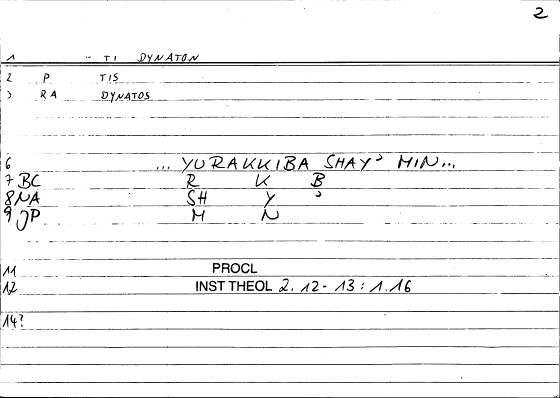 2
1 - TI DYNATON
2 P TIS
3 RA DYNATOS
6 ... YURAKKIBA SHAY' MIN...
7 BC R K B
8 NA SH Y '
9 JP M N
11 PROCL
12 INST THEOL 2. 12-13 : 1.16
14?